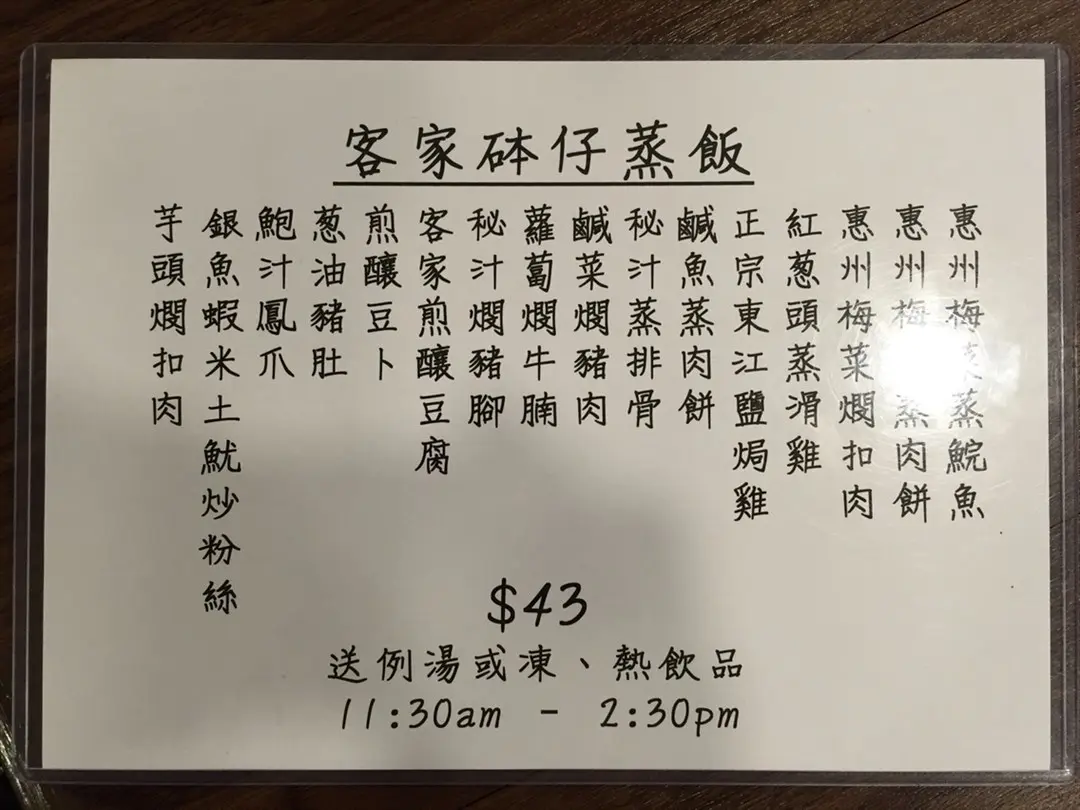 客家砵仔蒸飯
惠州梅菜蒸鯇魚
惠州梅菜蒸肉餅
惠州梅菜燜扣肉
紅葱頭蒸滑雞
正宗東江鹽焗雞
鹹魚蒸肉餅
秘汁蒸排骨
鹹菜燜豬肉
蘿蔔燜牛腩
秘汁燜豬腳
客家煎釀豆腐
煎釀豆卜
葱油豬肚
鮑汁鳳爪
銀魚蝦米土魷炒粉絲
芋頭燜扣肉
$43
送例湯或凍、熱飲品
11:30am - 2:30pm